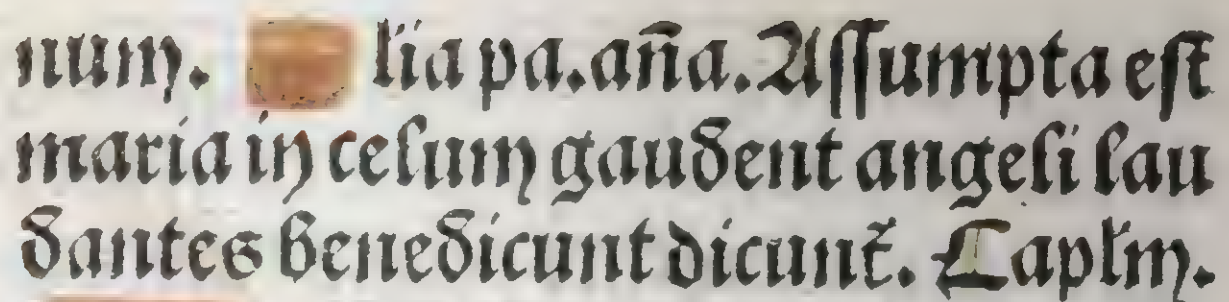 num. lia pa. aña. Assumpta est
maria in celum gaudent angeli lau
dantes benedicunt dicunt̄. Caplm.